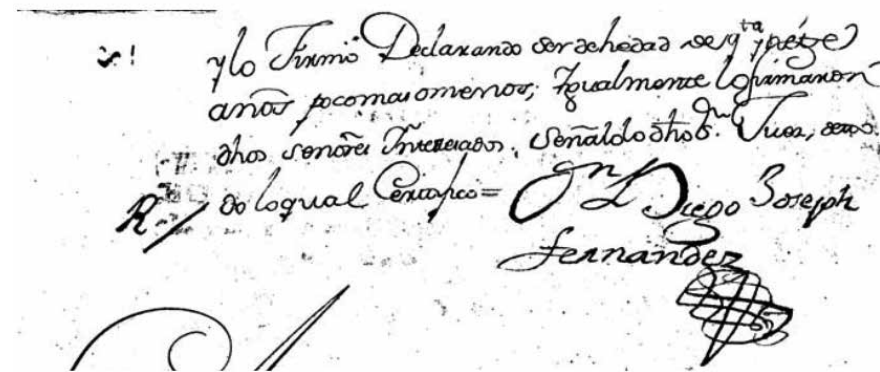 ylo Firmó Declarando ser de hedad de q.ta y siete
años poco mas o menos; Igualmente lo firmaron
dhos señores Interesados. Señaldo dho S.r Juez, de to
R / do lo qual Certifico=
Diego Joseph
fernandez